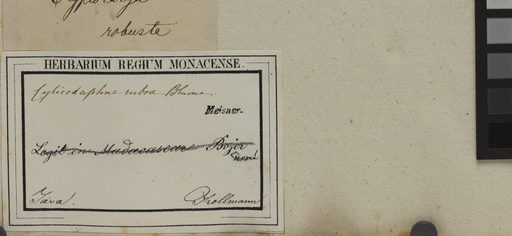 robuste
HERBARIUM REGIUM MONACENSE.
Cylicodaphne rubra Blume.
Meisner.
Legit in Madacascar Bojer
Java. Zollmann